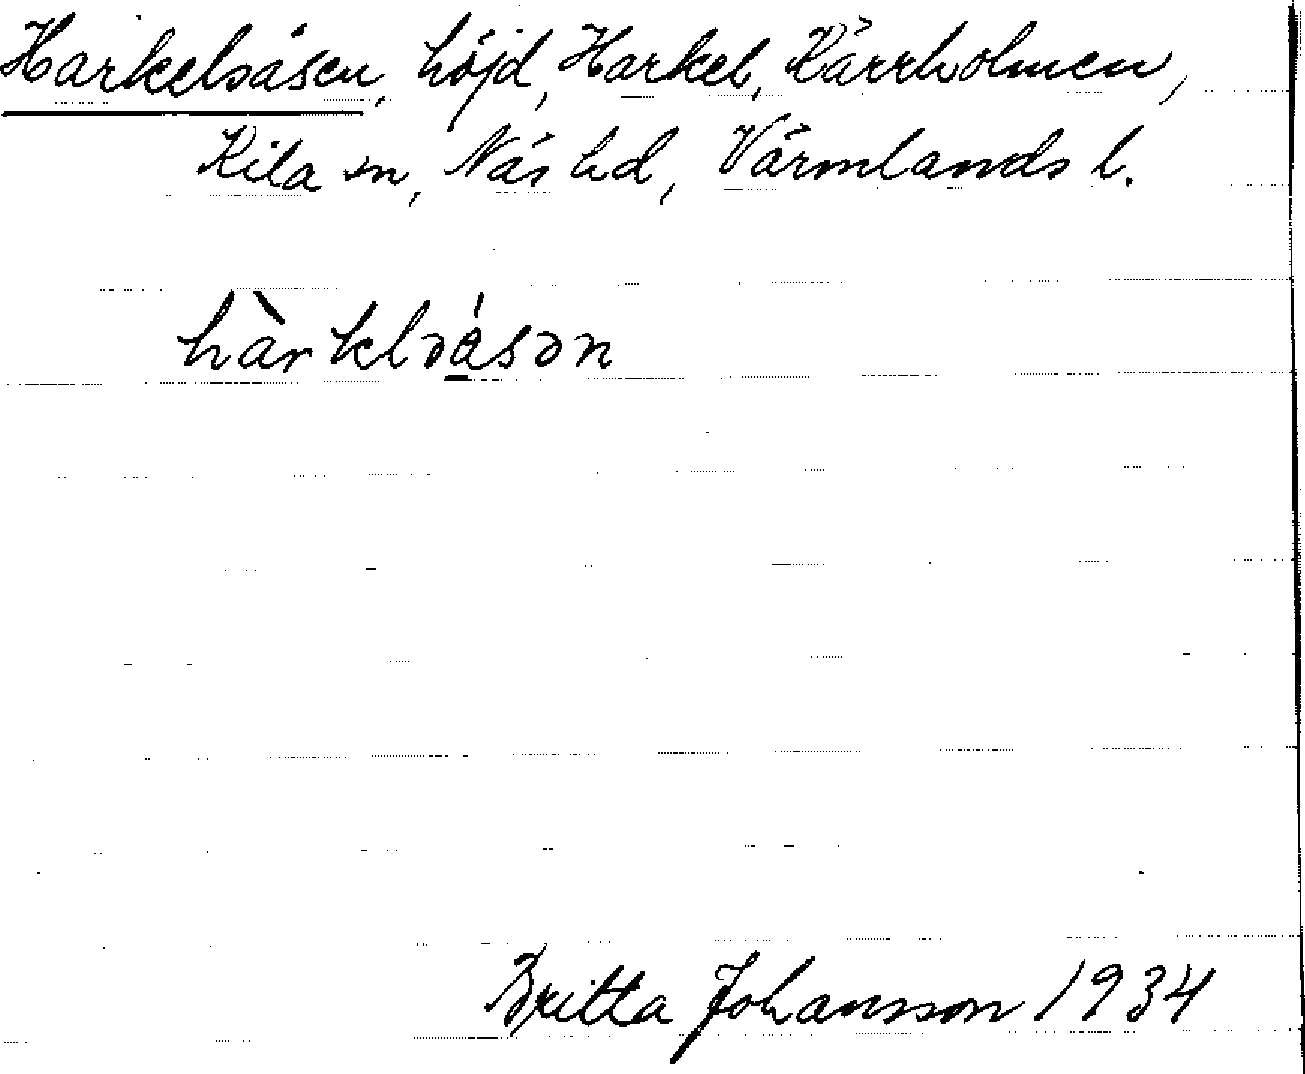 Harkelsåsen, höjd, Harkel, Kärrholmen,
Kila sn, Näs hd, Värmlands l.
hàrkləásən
Britta Johansson 1934